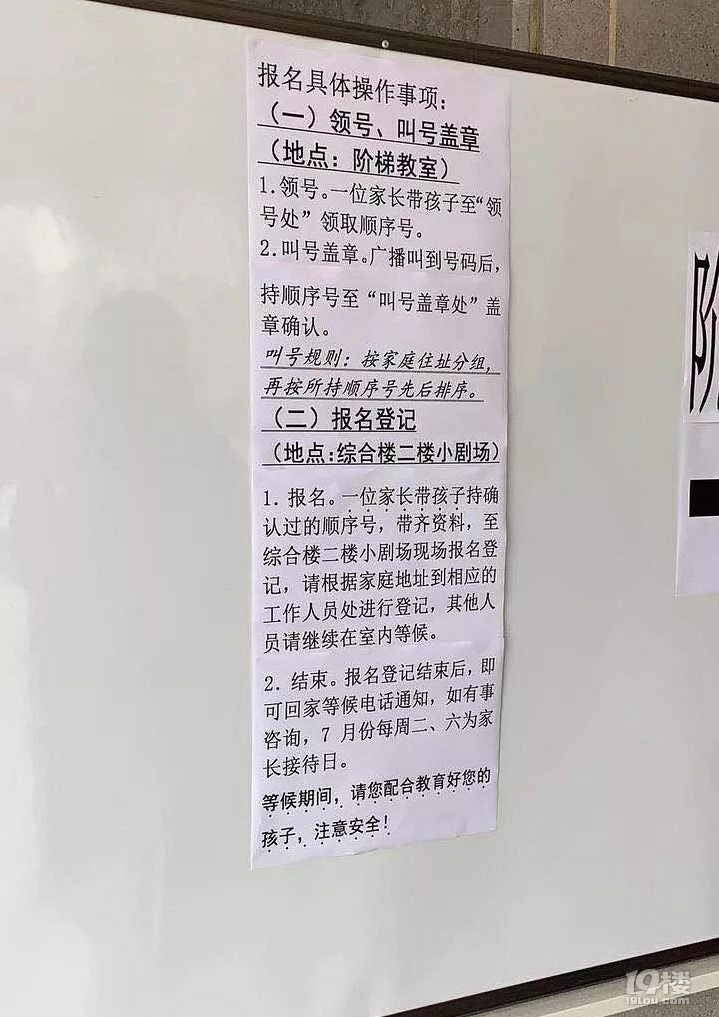 报名具体操作事项：
（一）领号、叫号盖章
（地点：阶梯教室）
1.领号。一位家长带孩子至“领
号处”领取顺序号。
2.叫号盖章。广播叫到号码后，
持顺序号至“叫号盖章处”盖
章确认。
叫号规则：按家庭住址分组，
再按所持顺序号先后排序。
（二）报名登记
（地点:综合楼二楼小剧场）
1. 报名。一位家长带孩子持确
认过的顺序号，带齐资料，至
综合楼二楼小剧场现场报名登
记，请根据家庭地址到相应的
工作人员处进行登记，其他人
员请继续在室内等候。
2. 结束。报名登记结束后，即
可回家等候电话通知，如有事
咨询，7 月份每周二、六为家
长接待日。
等候期间，请您配合教育好您的
孩子，注意安全！
阶
19楼
19lou.com